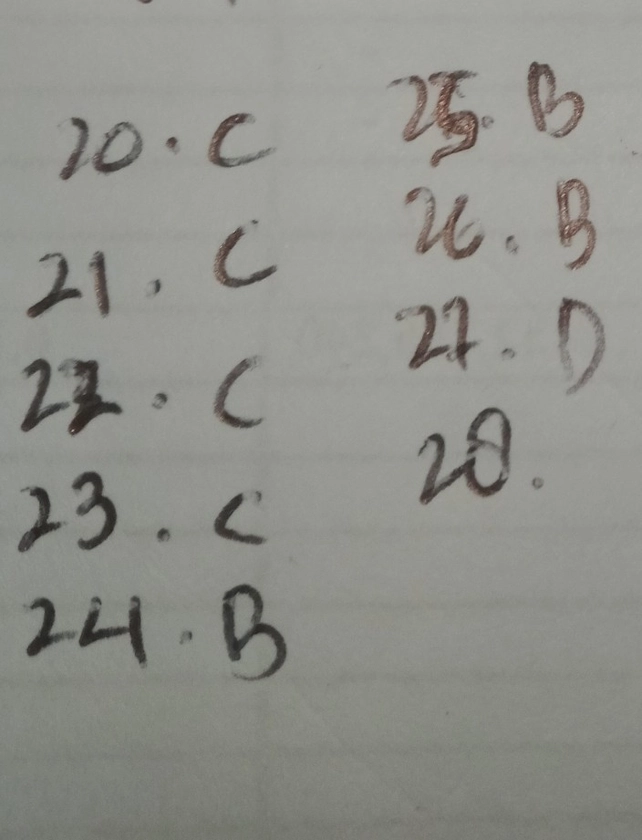 20. C
21. C
22. C
23. C
24. B
25. B
26. B
27. D
28.